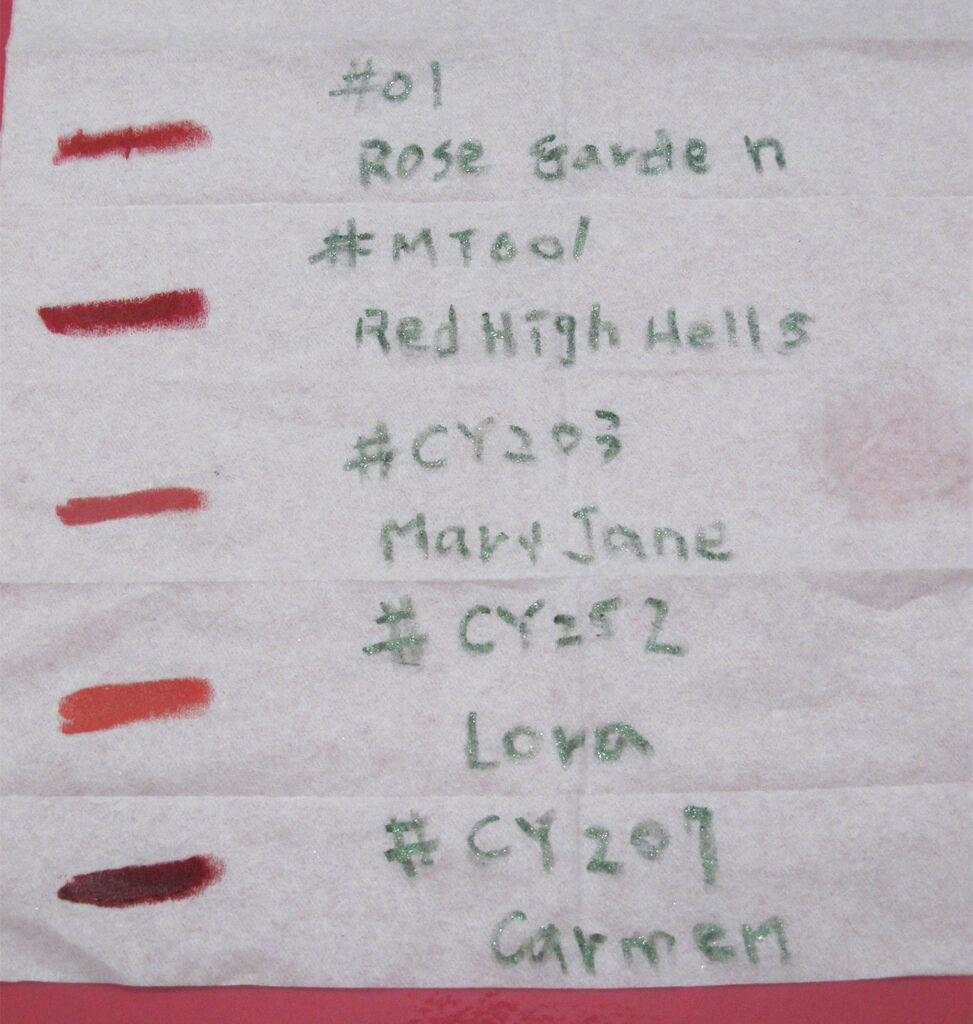 #01
Rose Garden
#MT001
Red High Hells
#CY203
Mary Jane
#CY252
Lora
#CY207
Carmen